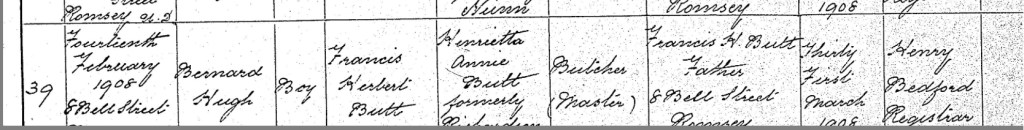 Romsey U.D
Nunn
Romsey
1908
39
Fourteenth
February
1908
8 Bell Street
Bernard
Hugh
Boy
Francis
Herbert
Butt
Henrietta
Annie
Butt
formerly
Richardson
Butcher
(Master)
Francis H. Butt
Father
8 Bell Street
Romsey
Thirty
First
March
1908
Henry
Bedford
Registrar